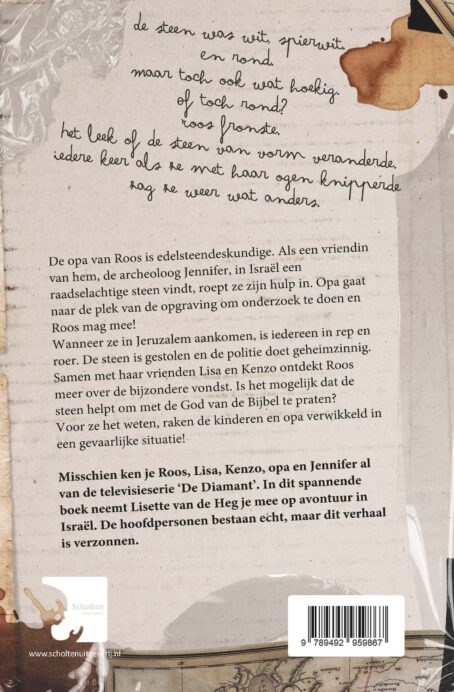 de steen was wit, spierwit.
en rond.
maar toch ook wat hoekig.
of toch rond?
roos fronste.
het leek of de steen van vorm veranderde.
iedere keer als ze met haar ogen knipperde
zag ze weer wat anders.
De opa van Roos is edelsteendeskundige. Als een vriendin
van hem, de archeoloog Jennifer, in Israël een
raadselachtige steen vindt, roept ze zijn hulp in. Opa gaat
naar de plek van de opgraving om onderzoek te doen en
Roos mag mee!
Wanneer ze in Jeruzalem aankomen, is iedereen in rep en
roer. De steen is gestolen en de politie doet geheimzinnig.
Samen met haar vrienden Lisa en Kenzo ontdekt Roos
meer over de bijzondere vondst. Is het mogelijk dat de
steen helpt om met de God van de Bijbel te praten?
Voor ze het weten, raken de kinderen en opa verwikkeld in
een gevaarlijke situatie!
Misschien ken je Roos, Lisa, Kenzo, opa en Jennifer al
van de televisieserie ‘De Diamant’. In dit spannende
boek neemt Lisette van de Heg je mee op avontuur in
Israël. De hoofdpersonen bestaan echt, maar dit verhaal
is verzonnen.
Scholten
Uitgeverij
www.scholtenuitgeverij.nl
9 789492 959867